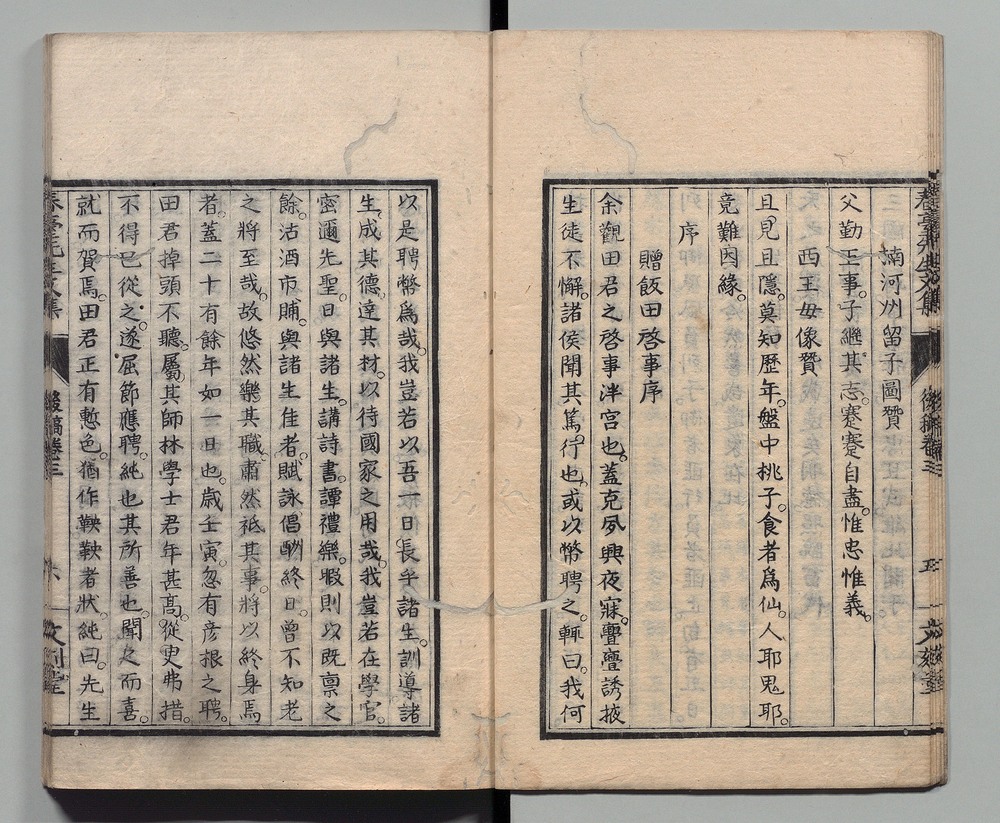 楠河州留子圖贊
父勤王事。子繼其志。蹇蹇自盡。惟忠惟義。
西王母像贊
且見且隱。莫知歷年。盤中桃子。食者爲仙。人耶鬼耶。
竟難因緣。
序
贈飯田啓事序
余觀田君之啓事泮宮也。蓋克夙興夜寐。亹亹誘掖
生徒不懈。諸侯聞其篤行也。或以幣聘之。輒曰。我何
以是聘幣爲哉。我豈若以吾一日長乎諸生。訓導諸
生。成其德。達其材。以待國家之用哉。我豈若在學官。
密邇先聖。日與諸生。講詩書。譚禮樂。暇則以既稟之
餘。沽酒市脯。與諸生佳者。賦詠倡酬終日。曾不知老
之將至哉。故悠然樂其職。肅然祗其事。將以終身焉
者。蓋二十有餘年如一日也。歲壬寅。忽有彥根之聘。
田君掉頭不聽。屬其師林學士君年甚高。從臾弗措。
不得已從之。遂屈節應聘。純也其所善也。聞之而喜。
就而賀焉。田君正有慙色。猶作鞅鞅者狀。純曰。先生
春臺先生文集
後稿卷三
六